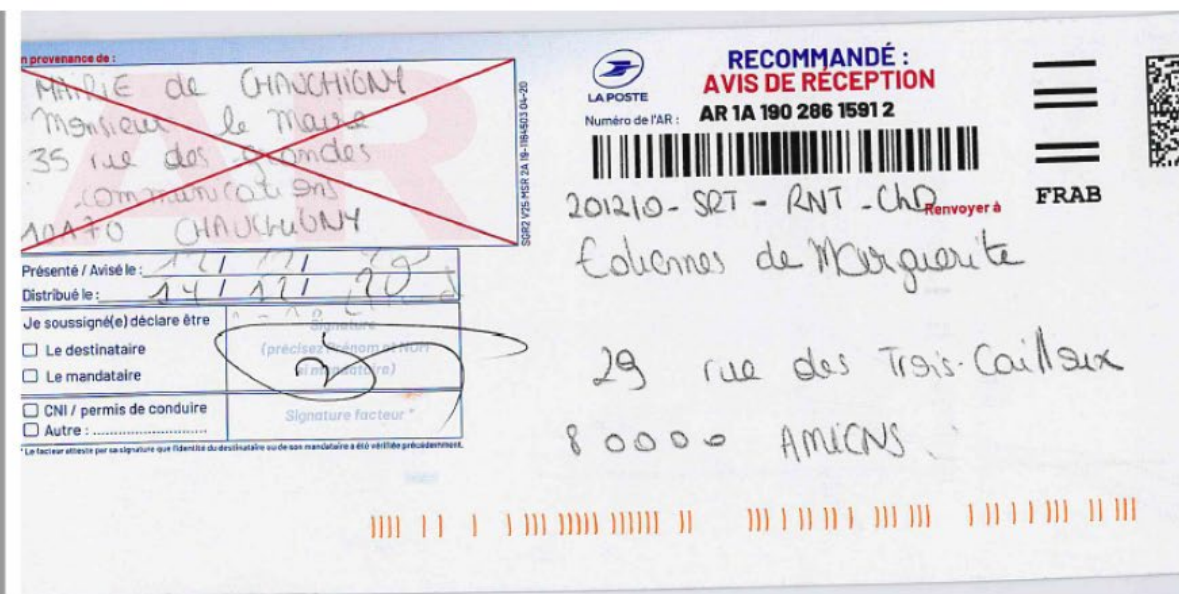 n provenance de :
MAIRIE de CHAUCHIGNY
Monsieur le Maire
35 rue des grandes
communications
10170 CHAUCHIGNY
SGR2 V25 MSR 2A 19-1164503 04-20
Présenté / Avisé le :
Distribué le : 14 / 12 / 20
Je soussigné(e) déclare être
Le destinataire
Le mandataire
CNI / permis de conduire
Autre :
Signature
(précisez Prénom et NOM
si mandataire)
Signature facteur *
* Le facteur atteste par sa signature que l'identité du destinataire ou de son mandataire a été vérifiée précédemment.
LA POSTE
RECOMMANDÉ :
AVIS DE RÉCEPTION
Numéro de l'AR : AR 1A 190 286 1591 2
FRAB
201210 - SRT - RNT - ChD
Renvoyer à
Eoliennes de Marguerite
29 rue des Trois-Cailloux
80000 AMIENS